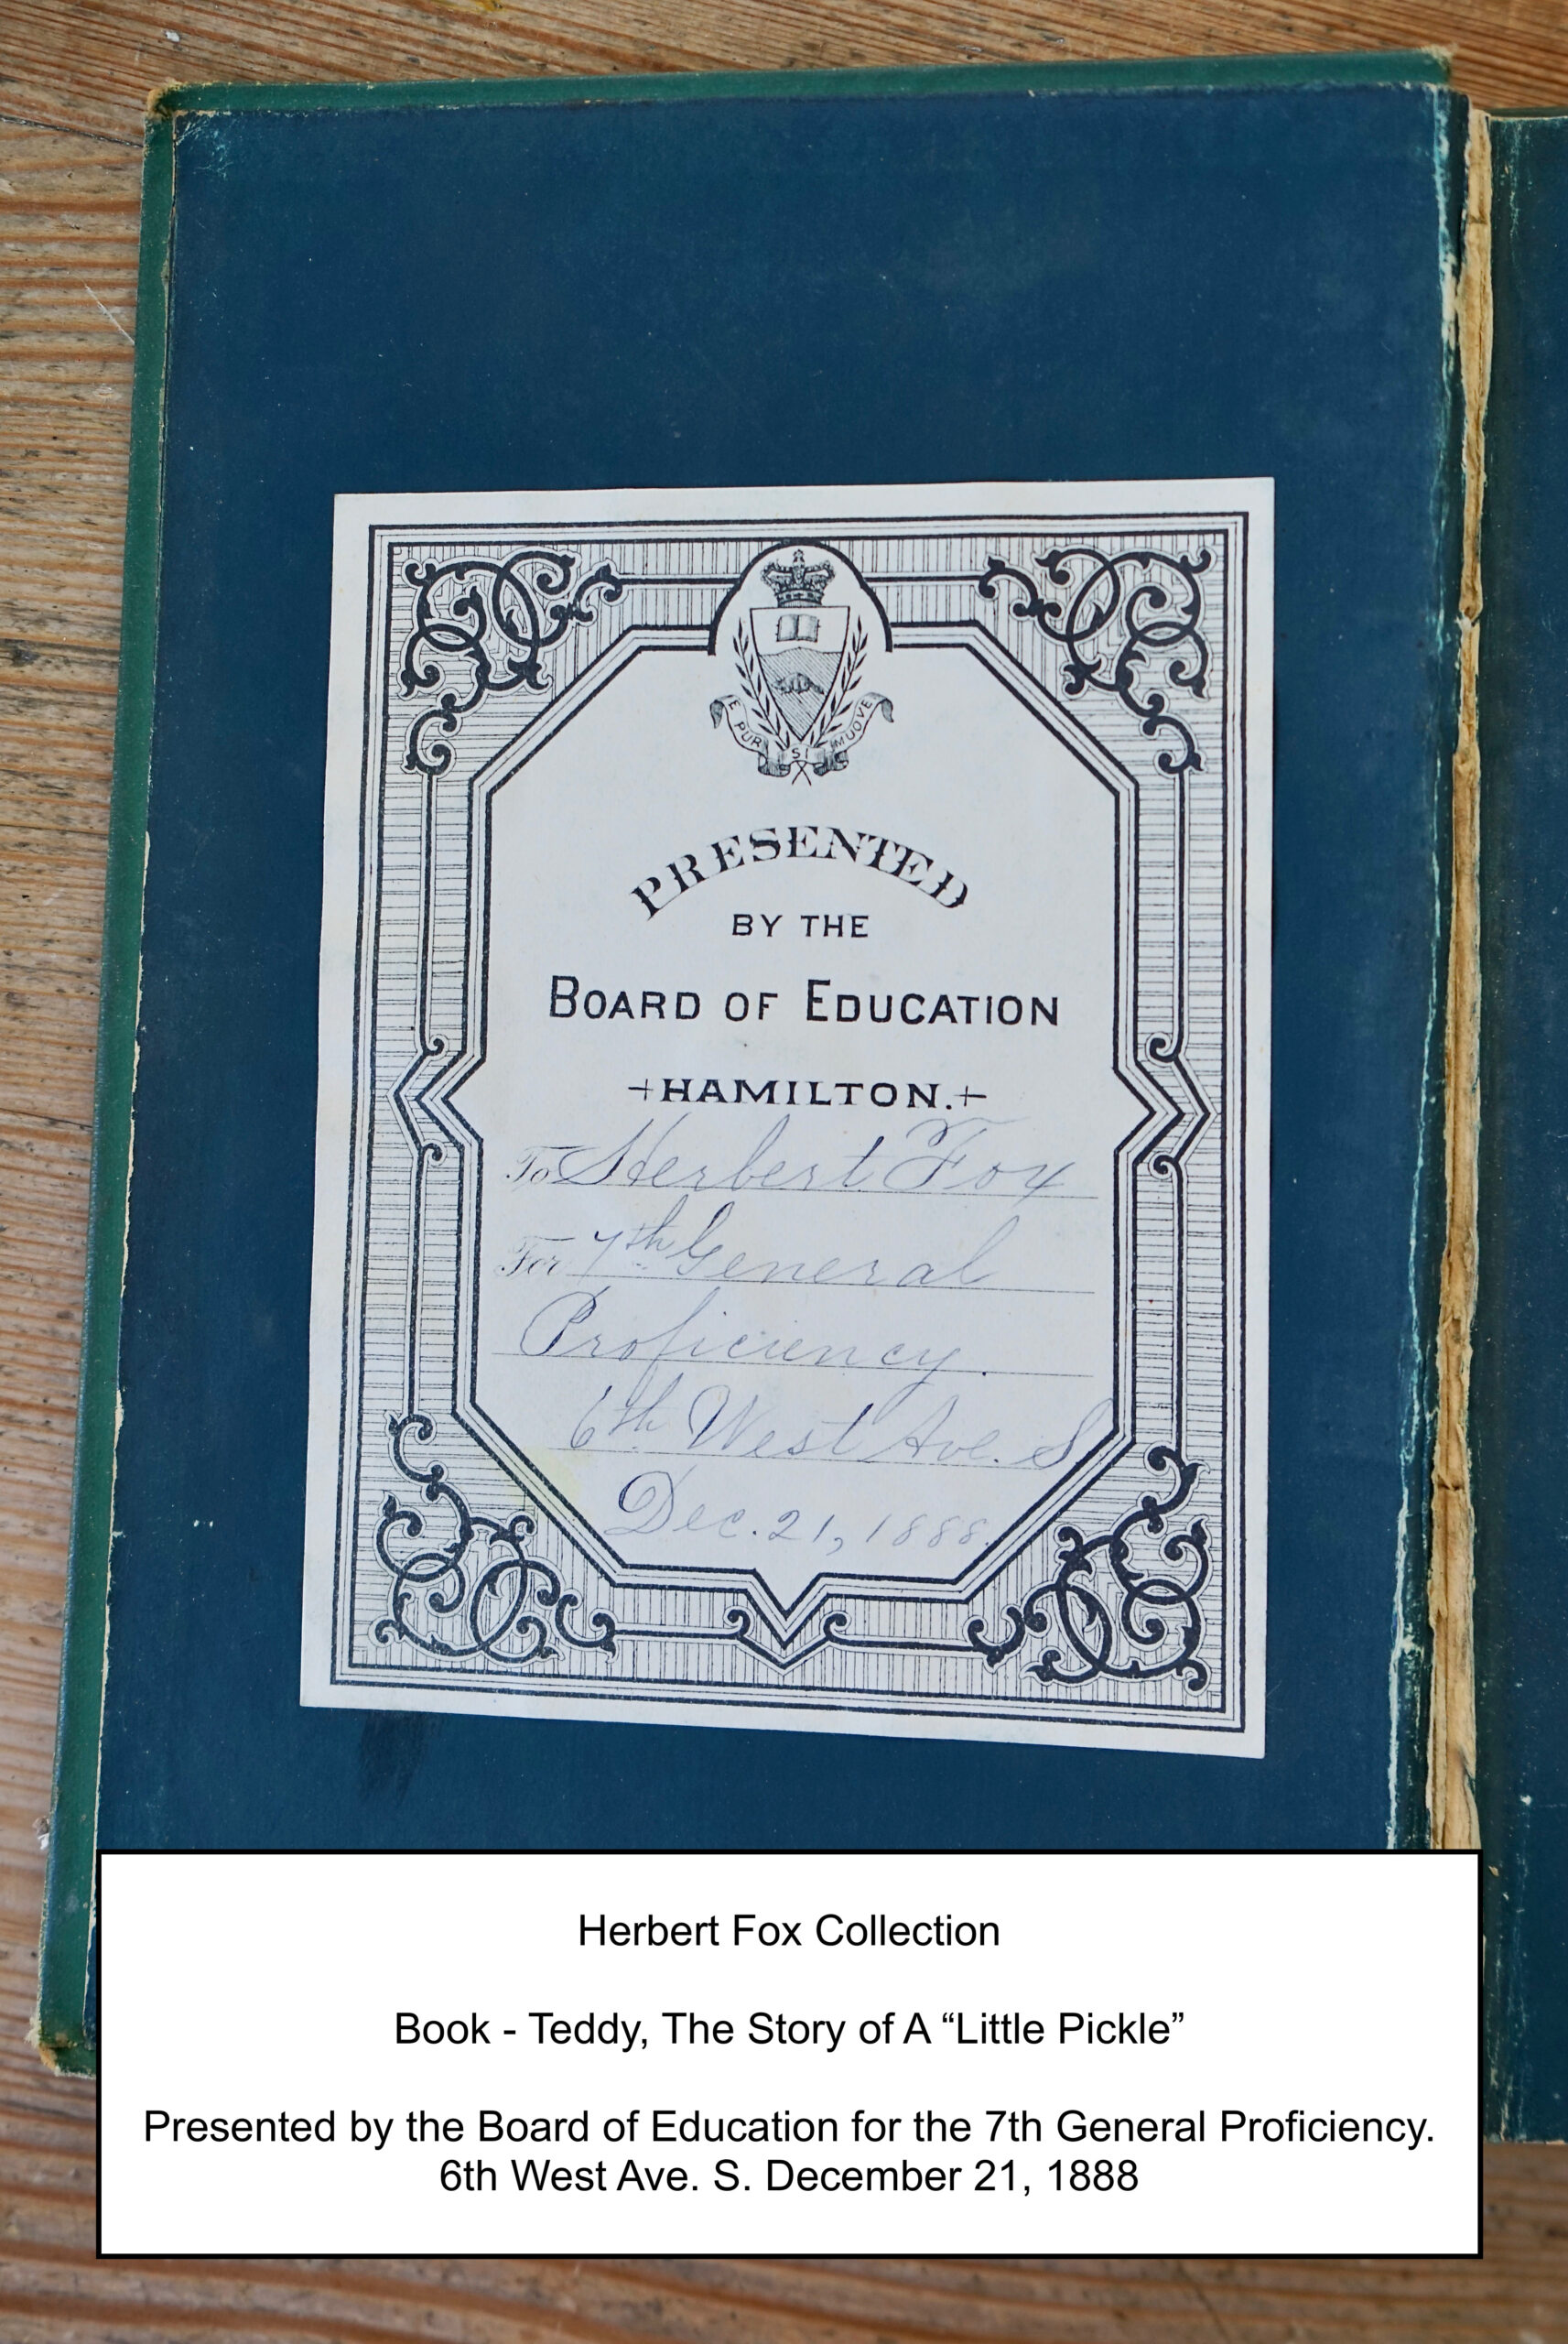 E PUR SI MUOVE
PRESENTED
BY THE
BOARD OF EDUCATION
HAMILTON.
To Herbert Fox
For 7th General
Proficiency.
6th West Ave. S
Dec. 21, 1888.
Herbert Fox Collection
Book - Teddy, The Story of A “Little Pickle”
Presented by the Board of Education for the 7th General Proficiency.
6th West Ave. S. December 21, 1888